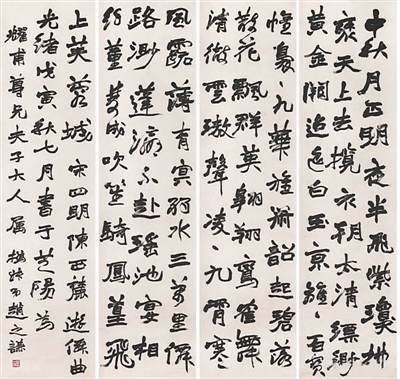 中秋月正明夜半飛紫瓊排
雲天上去攬衣朝太清縹緲
黃金闕逍遙白玉京百寶
幢裊九華旌韶起碧落
散花飄群英翱翔鸞雀舞
清徹雲璈聲凌〻九霄寒〻
風露薄青冥弱水三萬里僊
路渺蓬瀛不赴瑤池宴相
約董雙成吹笙騎鳳皇飛
上芙蓉城 宋四明陳西麓遊僊曲
光緒戊寅秋七月書于芝陽為
耀甫尊兄夫子大人屬 撝叔弟趙之謙